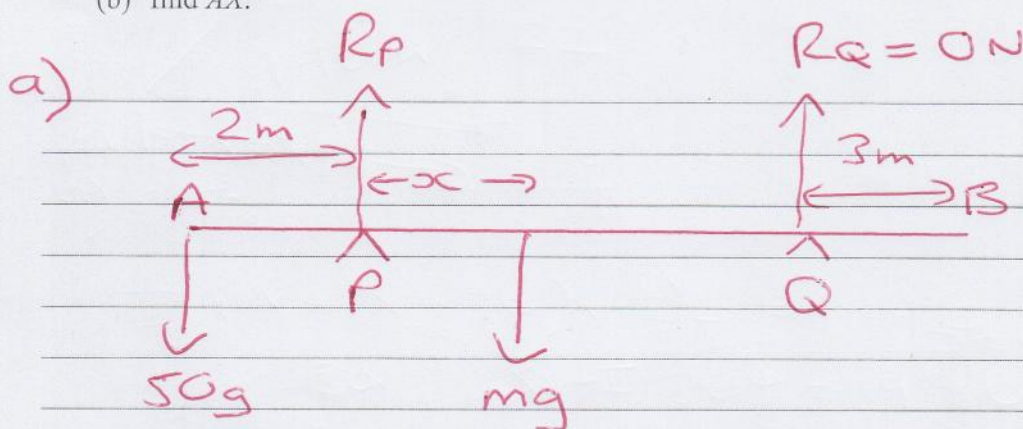 (b) find AX.
a)
Rp
RQ = 0N
2m
x
3m
A
B
P
Q
50g
mg